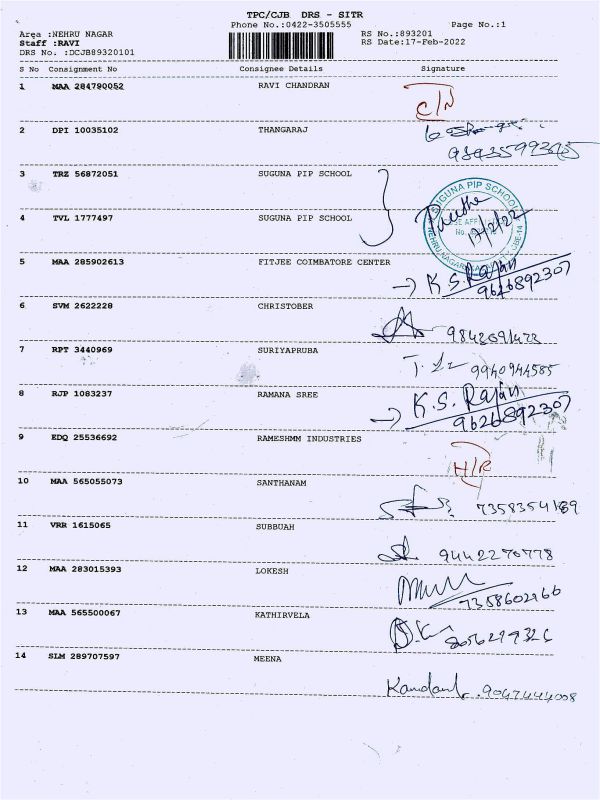 TPC/CJB DRS - SITR
Phone No.:0422-3505555 Page No.:1
Area :NEHRU NAGAR RS No.:893201
Staff :RAVI RS Date:17-Feb-2022
DRS No. :DCJB89320101
S No Consignment No Consignee Details Signature
1 MAA 284790052 RAVI CHANDRAN
C/N
2 DPI 10035102 THANGARAJ
3 TRZ 56872051 SUGUNA PIP SCHOOL
SUGUNA PIP SCHOOL
4 TVL 1777497 SUGUNA PIP SCHOOL
17/2/22
5 MAA 285902613 FITJEE COIMBATORE CENTER
K.S. Rajan
9626892307
6 SVM 2622228 CHRISTOBER
7 RPT 3440969 SURIYAPRUBA
9940944585
8 RJP 1083237 RAMANA SREE
K.S. Rajan
9626892307
9 EDQ 25536692 RAMESHMM INDUSTRIES
H/R
10 MAA 565055073 SANTHANAM
7358354169
11 VRR 1615065 SUBBUAH
9442270778
12 MAA 283015393 LOKESH
7358602966
13 MAA 565500067 KATHIRVELA
8056279326
14 SLM 289707597 MEENA
9047444008